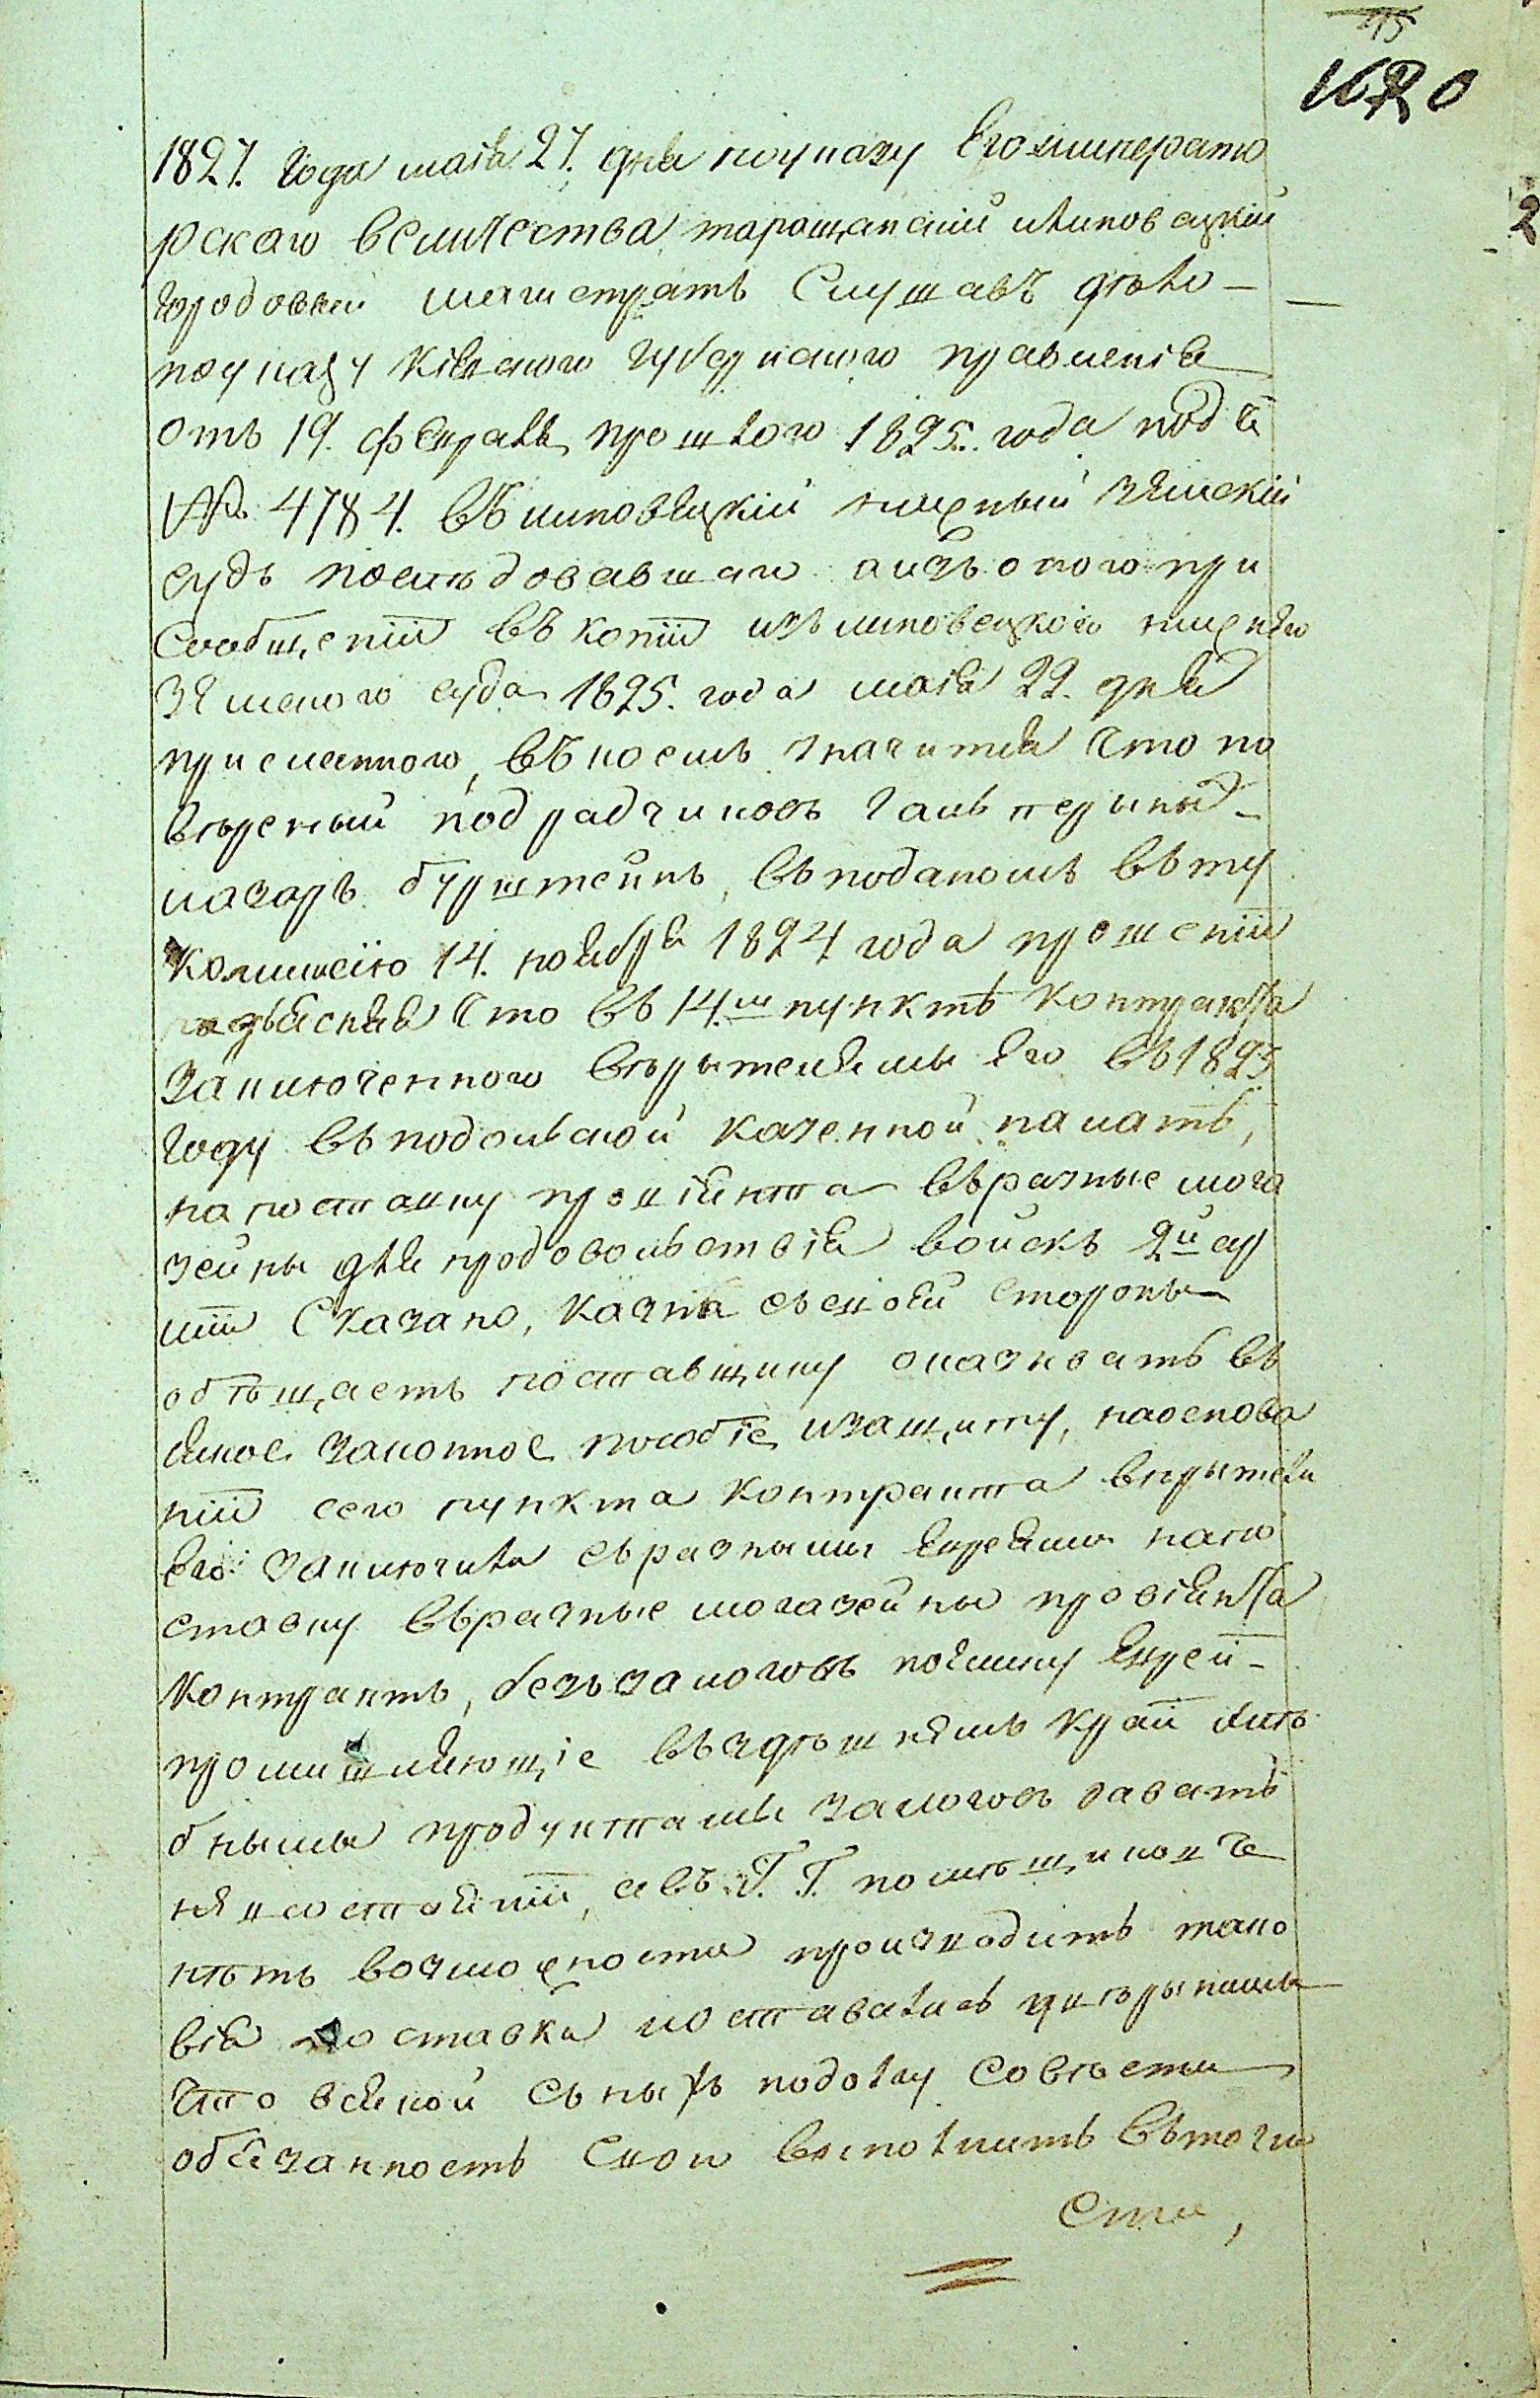 115
1620
1827. Года маія 27. дня поуказу Его императо
рскаго величества таращанский илиповецкий
городовыи магистратъ Слушавъ дѣло —
поуказу Кіевского губернского правленія
отъ 19. февраля прошлого 1825. года под
№ 4784. въ липовецкій нижный земскій
судъ последовавшаго аизъ оного при
Сообщеніи въ копіи изъ липовецкого нижнего
земского суда 1825. года маія 22. дня
присланного, въ коемъ значится что по
вѣреный подрадчиковъ
лазаръ бурштейнъ, въ поданомъ въ ту
комисею 14. ноября 1824 года прошеніи
что въ 14.м пунктѣ контракта
заключенного вѣрителями Его въ 1823
году въ подольской казенной палатѣ,
на поставку провіянта въ разные мога
зейны для продовольствія войскъ 2й ар
міи Сказано, казна съ своей стороны
обѣщаетъ поставщику оказивать вс
якое законное пособіе изащиту, наоснова
ніи сего пункта контракта вѣрители
Его заключили съ разными Евреями напо
ставку въ разные могазейны провіянта
контрактъ, безъ залоговъ поелику Евреи —
промишляющіе въ здѣшнемъ краи хлѣ
бными продуктами залоговъ давать
невсостояніи, авъ Г. Г. помѣщиковъ
нѣтъ возможности производить тако
вія поставки оставались увѣрынними
что всякой съ ныхъ подолгу Совѣсти
обезанность Свои выполнить въ точно
сти,